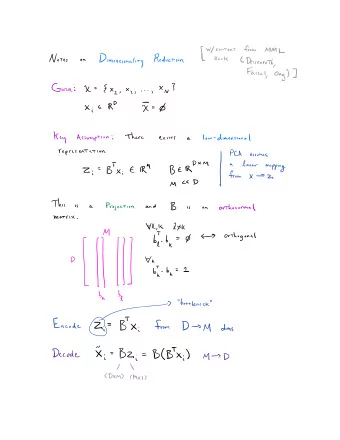 Notes on Dimensionality Reduction
[w/content from MML
Book (Deisenroth,
Faisal, Ong)]
Given: X = {x₁, x₂, ..., x_N}
xᵢ ∈ ℝᴰ x̄ = ∅
Key Assumption: There exists a low-dimensional
representation
zᵢ = Bᵀxᵢ ∈ ℝᴹ B ∈ ℝᴰˣᴹ
M << D
PCA assumes
a linear mapping
from x → z
This is a Projection and B is an orthonormal
matrix.
M
D
b_k b_l
∀l,k l≠k
b_lᵀ·b_k = ∅ ↔ orthogonal
∀k
b_kᵀ·b_k = 1
"bottleneck"
Encode zᵢ = Bᵀxᵢ from D→M dims
Decode x̃ᵢ = Bzᵢ = B(Bᵀxᵢ) M→D
(DxM) (Mx1)